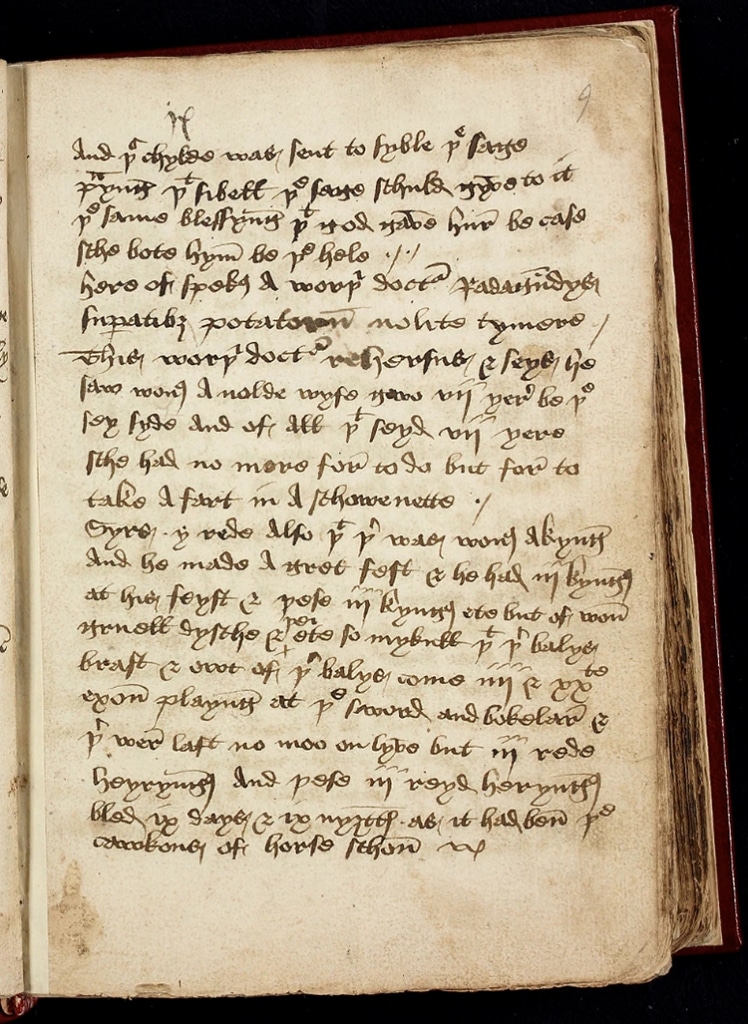 9
And þt chylde was sent to syble þe sage
prayng þt sibell þe sage schuld gyve to it
þe same blessyng þt god gave hur be case
sche bote hym be þe hele ./ .
here of spekys A worþi doctr Radagundys
nolite tymere ./
This worþi doctr rehersus & seys he
saw wons A nolde wyfe gwo vii yer be þe
sey syde And of All þt seyd vii yere
sche had no more for to do but for to
take A fart in A schowenette ./
Syrs y rede Also þt þr was wons A kyng
And he made A gret fest & he had iij kyngs
at his feyst & þese iij kyngs ete but of won
gruell dysche & þei ete so mykull þt þr balys
brast & owt of þr balys come iiij & xxte
oxon playng at þe sword and bokelar &
þr wer laft no moo on lyve but iij rede
heryngs And þese iij reyd heryngs
bled ix days & ix nyȝttys as it had ben þe
cawkons of horse schon